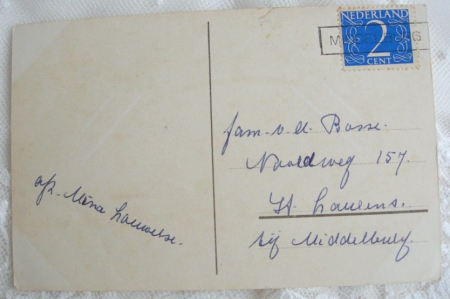 NEDERLAND
2
CENT
fam. v. d. Bosse.
Noordweg 157.
St. Laurens.
bij Middelburg.
afz. Mina